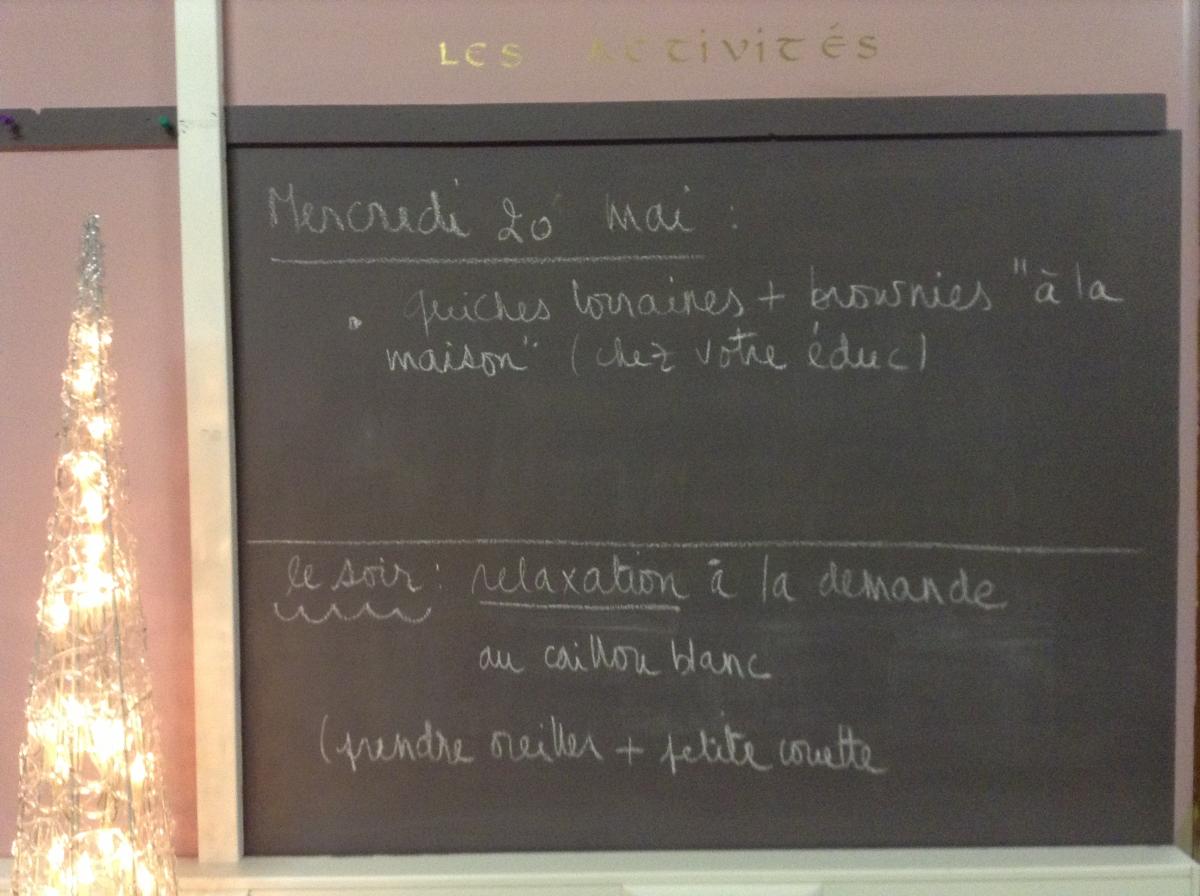 LES ACTIVITÉS
Mercredi 20 mai :
• quiches lorraines + brownies "à la
maison" (chez votre éduc)
le soir : relaxation à la demande
au caillou blanc
(prendre oreiller + petite couette